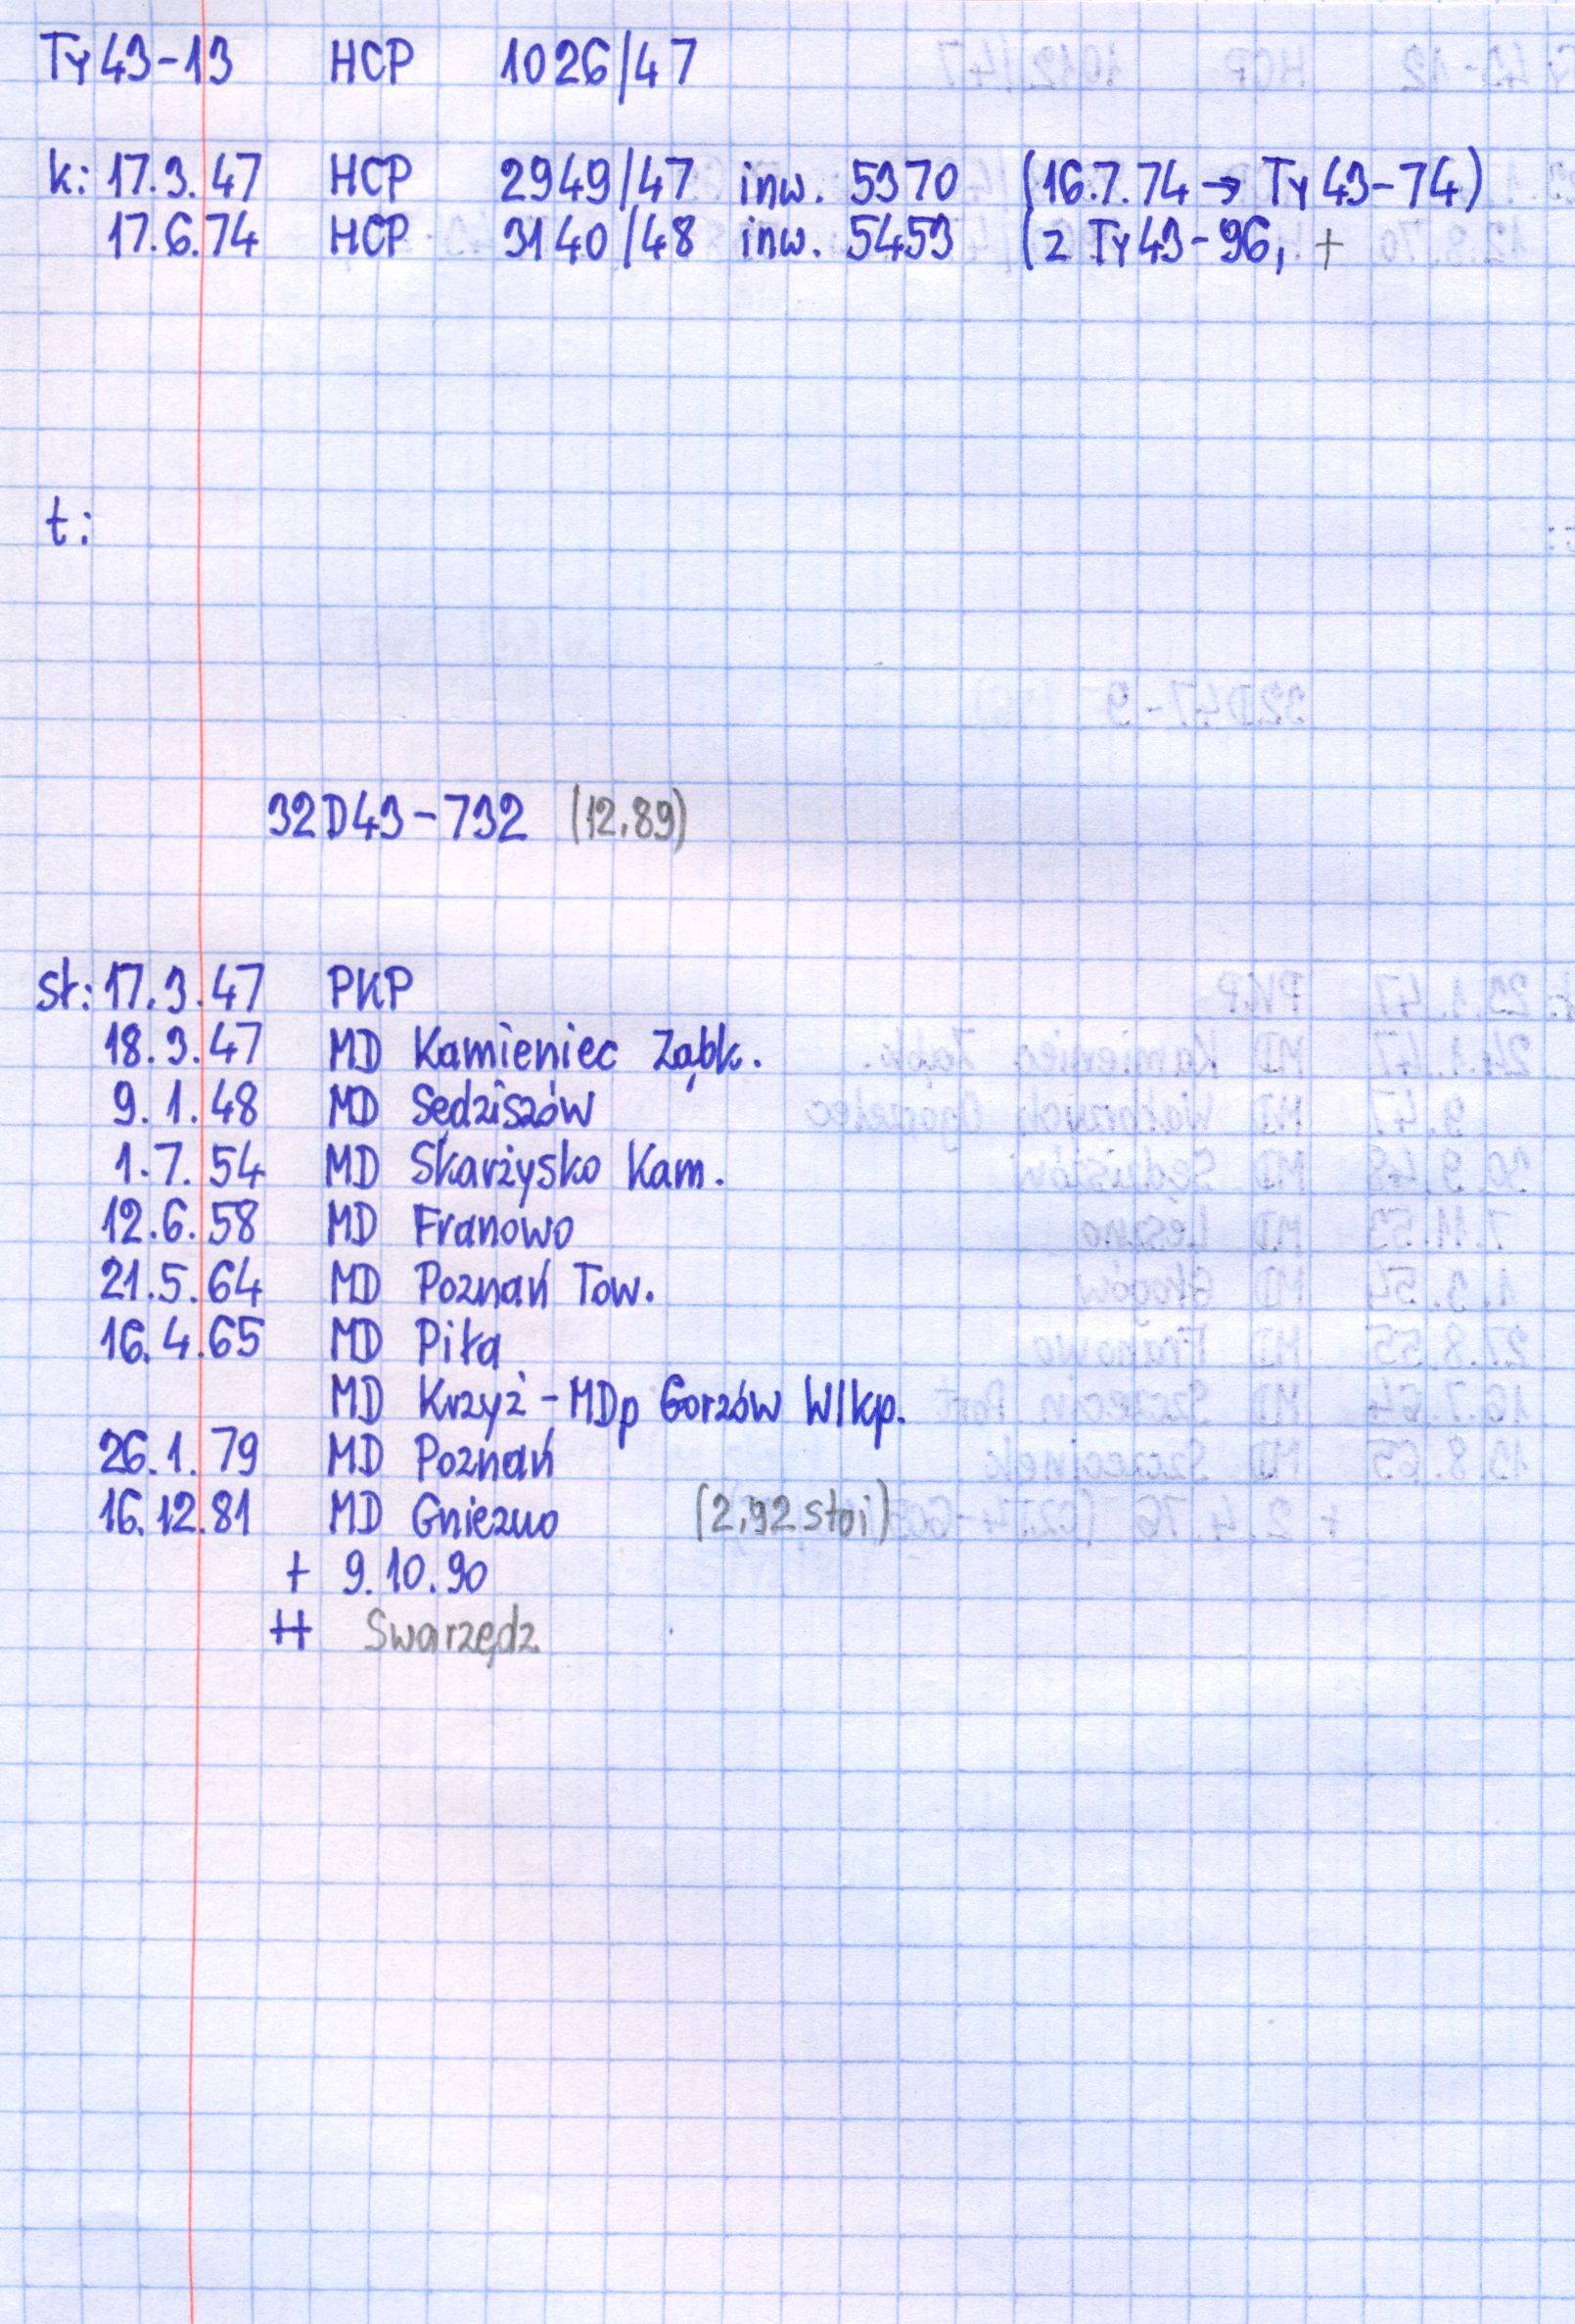 Ty43-13 HCP 1026/47
k: 17.3.47 HCP 2949/47 inw. 5370 (16.7.74 → Ty43-74)
17.6.74 HCP 3140/48 inw. 5453 (z Ty43-96, +
t:
32D43-732 (12.89)
st: 17.3.47 PKP
18.3.47 MD Kamieniec Ząbk.
9.1.48 MD Sędziszów
1.7.54 MD Skarżysko Kam.
12.6.58 MD Franowo
21.5.64 MD Poznań Tow.
16.4.65 MD Piła
MD Krzyż - MDp Gorzów Wlkp.
26.1.79 MD Poznań
16.12.81 MD Gniezno (2.92 stoi)
+ 9.10.90
++ Swarzędz